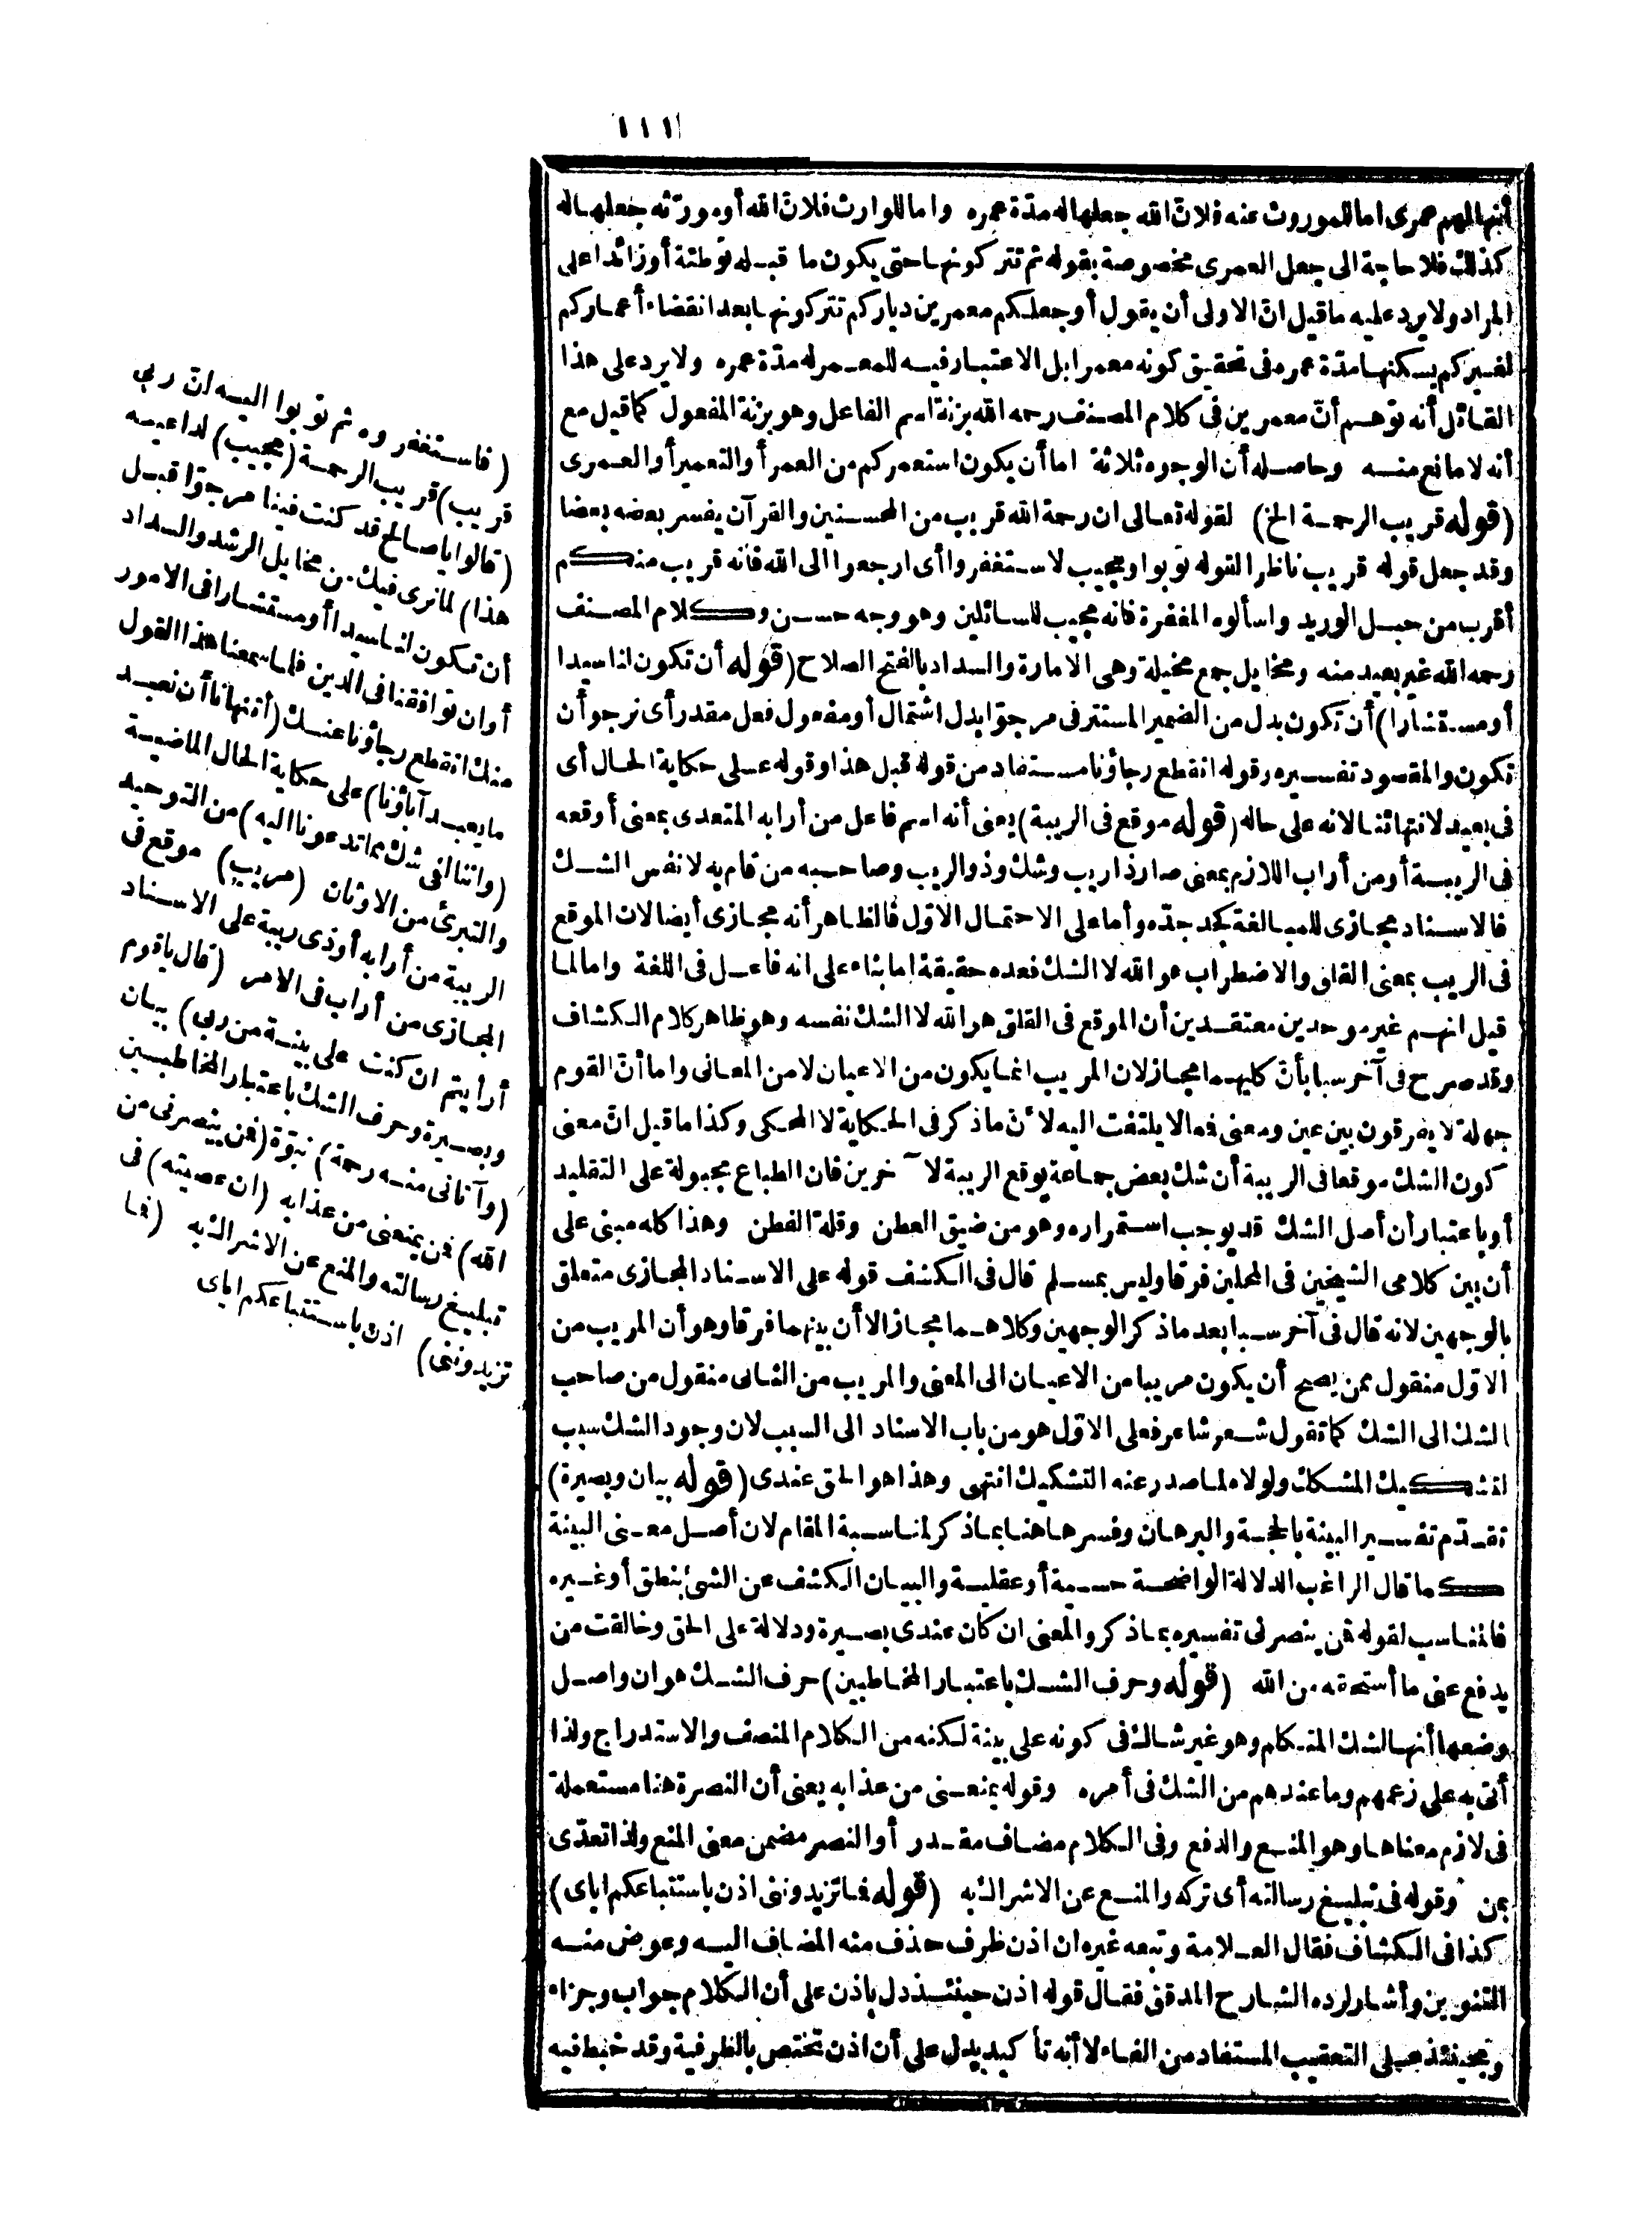 ١١١
أنها لهم عمرى اما للموروث عنه فلانّ الله جعلها له مدّة عمره واما للوارث فلانّ الله أو مورّثه جعلها له
كذلك فلا حاجة الى جعل العمرى مخصوصة بقوله ثم تتركونها حتى يكون ما قبله توطئة أو زائدا على
المراد ولا يرد عليه ما قيل انّ الاولى أن يقول أو جعلكم معمرين دياركم تتركونها بعد انقضاء أعماركم
لغيركم يسكنها مدّة عمره فى تحقيق كونه معمرا بل الاعتبار فيه للمعمر له مدّة عمره ولا يرد على هذا
القائل أنه توهم أنّ معمرين فى كلام المصنف رحمه الله بزنة اسم الفاعل وهو بزنة المفعول كما قيل مع
أنه لا مانع منه وحاصله أن الوجوه ثلاثة اما أن يكون استعمركم من العمر أو التعمير أو العمرى
(قوله قريب الرحمة الخ) لقوله تعالى ان رحمة الله قريب من المحسنين والقرآن يفسر بعضه بعضا
وقد جعل قوله قريب ناظرا لقوله توبوا ومجيب لاستغفروا أى ارجعوا الى الله فانه قريب منكم
أقرب من حبل الوريد واسألوه المغفرة فانه مجيب للسائلين وهو وجه حسن وكلام المصنف
رحمه الله غير بعيد منه ومخايل جمع مخيلة وهى الامارة والسداد بالفتح الصلاح (قوله أن تكون لنا سيدا
أو مستشارا) أن تكون بدل من الضمير المستتر فى مرجوّا بدل اشتمال أو مفعول فعل مقدر أى نرجو أن
تكون والمقصود تفسيره وقوله انقطع رجاؤنا مستفاد من قوله قبل هذا وقوله على حكاية الحال أى
فى يعبد لا نتهائنا لانه على حاله (قوله موقع فى الريبة) يعنى أنه اسم فاعل من أرابه المتعدى بمعنى أوقعه
فى الريبة أو من أراب اللازم بمعنى صار ذا ريب وشك وذو الريب وصاحبه من قام به لا نفس الشك
فالاسناد مجازى للمبالغة كجد جدّه وأما على الاحتمال الاوّل فالظاهر أنه مجازى أيضا لان الموقع
فى الريب بمعنى القلق والاضطراب هو الله لا الشك فعده حقيقة اما بناء على انه فاعل فى اللغة واما لما
قيل انهم غير موحدين معتقدين أن الموقع فى القلق هو الله لا الشك نفسه وهو ظاهر كلام الكشاف
وقد صرح فى آخر سبا بأنّ كليهما مجاز لان المريب انما يكون من الاعيان لا من المعانى واما أنّ القوم
جهلة لا يفرقون بين عين ومعنى فمما لا يلتفت اليه لانّ ما ذكر فى الحكاية لا المحكى وكذا ما قيل انّ معنى
كون الشك موقعا فى الريبة أن شك بعض جماعة يوقع الريبة لآخرين فان الطباع مجبولة على التقليد
أو باعتبار أن أصل الشك قد يوجب استمراره وهو من ضيق العطن وقلة الفطن وهذا كله مبنى على
أن بين كلامى الشيخين فى المحلين فرقا وليس بمسلم قال فى الكشف قوله على الاسناد المجازى متعلق
بالوجهين لانه قال فى آخر سبا بعد ما ذكر الوجهين وكلاهما مجاز الا أن بينهما فرقا وهو أن المريب من
الاوّل منقول ممن يصح أن يكون مريبا من الاعيان الى المعنى والمريب من الثانى منقول من صاحب
الشك الى الشك كما تقول شعر شاعر فعلى الاوّل هو من باب الاسناد الى السبب لان وجود الشك سبب
لتشكيك المشكك ولولاه لما صدر عنه التشكيك انتهى وهذا هو الحق عندى (قوله بيان وبصيرة)
تقدّم تفسير البينة بالحجة والبرهان وفسرها هنا بما ذكر لمناسبة المقام لان أصل معنى البينة
كما قال الراغب الدلالة الواضحة حسية أو عقلية والبيان الكشف عن الشئ بنطق أو غيره
فالمناسب لقوله فمن ينصرنى تفسيره بما ذكر والمعنى ان كان عندى بصيرة ودلالة على الحق وخالفت من
يدفع عنى ما أستحقه من الله (قوله وحرف الشك باعتبار المخاطبين) حرف الشك هو ان واصل
وضعها أنها لشك المتكلم وهو غير شاك فى كونه على بينة لكنه من الكلام المنصف والاستدراج ولذا
أتى به على زعمهم وما عندهم من الشك فى أمره وقوله يمنعنى من عذابه يعنى أن النصرة هنا مستعملة
فى لازم معناها وهو المنع والدفع وفى الكلام مضاف مقدر أو النصر مضمن معنى المنع ولذا تعدّى
بمن وقوله فى تبليغ رسالته أى تركه والمنع عن الاشراك به (قوله فما تزيدوننى اذن باستتباعكم اياى)
كذا فى الكشاف فقال العلامة وتبعه غيره ان اذن ظرف حذف منه المضاف اليه وعوض منه
التنوين وأشار لرده الشارح المدقق فقال قوله اذن حينئذ دل باذن على أن الكلام جواب وجزاء
وبحينئذ على التعقيب المستفاد من الفاء لا أنه تأكيد يدل على أن اذن تختص بالظرفية وقد خبط فيه
(فاستغفروه ثم توبوا اليه انّ ربى
قريب) قريب الرحمة (مجيب) لداعيه
(قالوا يا صالح قد كنت فينا مرجوّا قبل
هذا) لما نرى فيك من مخايل الرشد والسداد
أن تكون لنا سيدا أو مستشارا فى الامور
أو ان توافقنا فى الدين فلما سمعنا هذا القول
منك انقطع رجاؤنا عنك (أتنهانا أن نعبد
ما يعبد آباؤنا) على حكاية الحال الماضية
(واننا لفى شك مما تدعونا اليه) من التوحيد
والتبرئ من الاوثان (مريب) موقع فى
الريبة من أرابه أو ذى ريبة على الاسناد
المجازى من أراب فى الامر (قال يا قوم
أرأيتم ان كنت على بينة من ربى) بيان
وبصيرة وحرف الشك باعتبار المخاطبين
(وآتانى منه رحمة) نبوّة (فمن ينصرنى من
الله) فمن يمنعنى من عذابه (ان عصيته) فى
تبليغ رسالته والمنع عن الاشراك به (فما
تزيدوننى) اذن باستتباعكم اياى